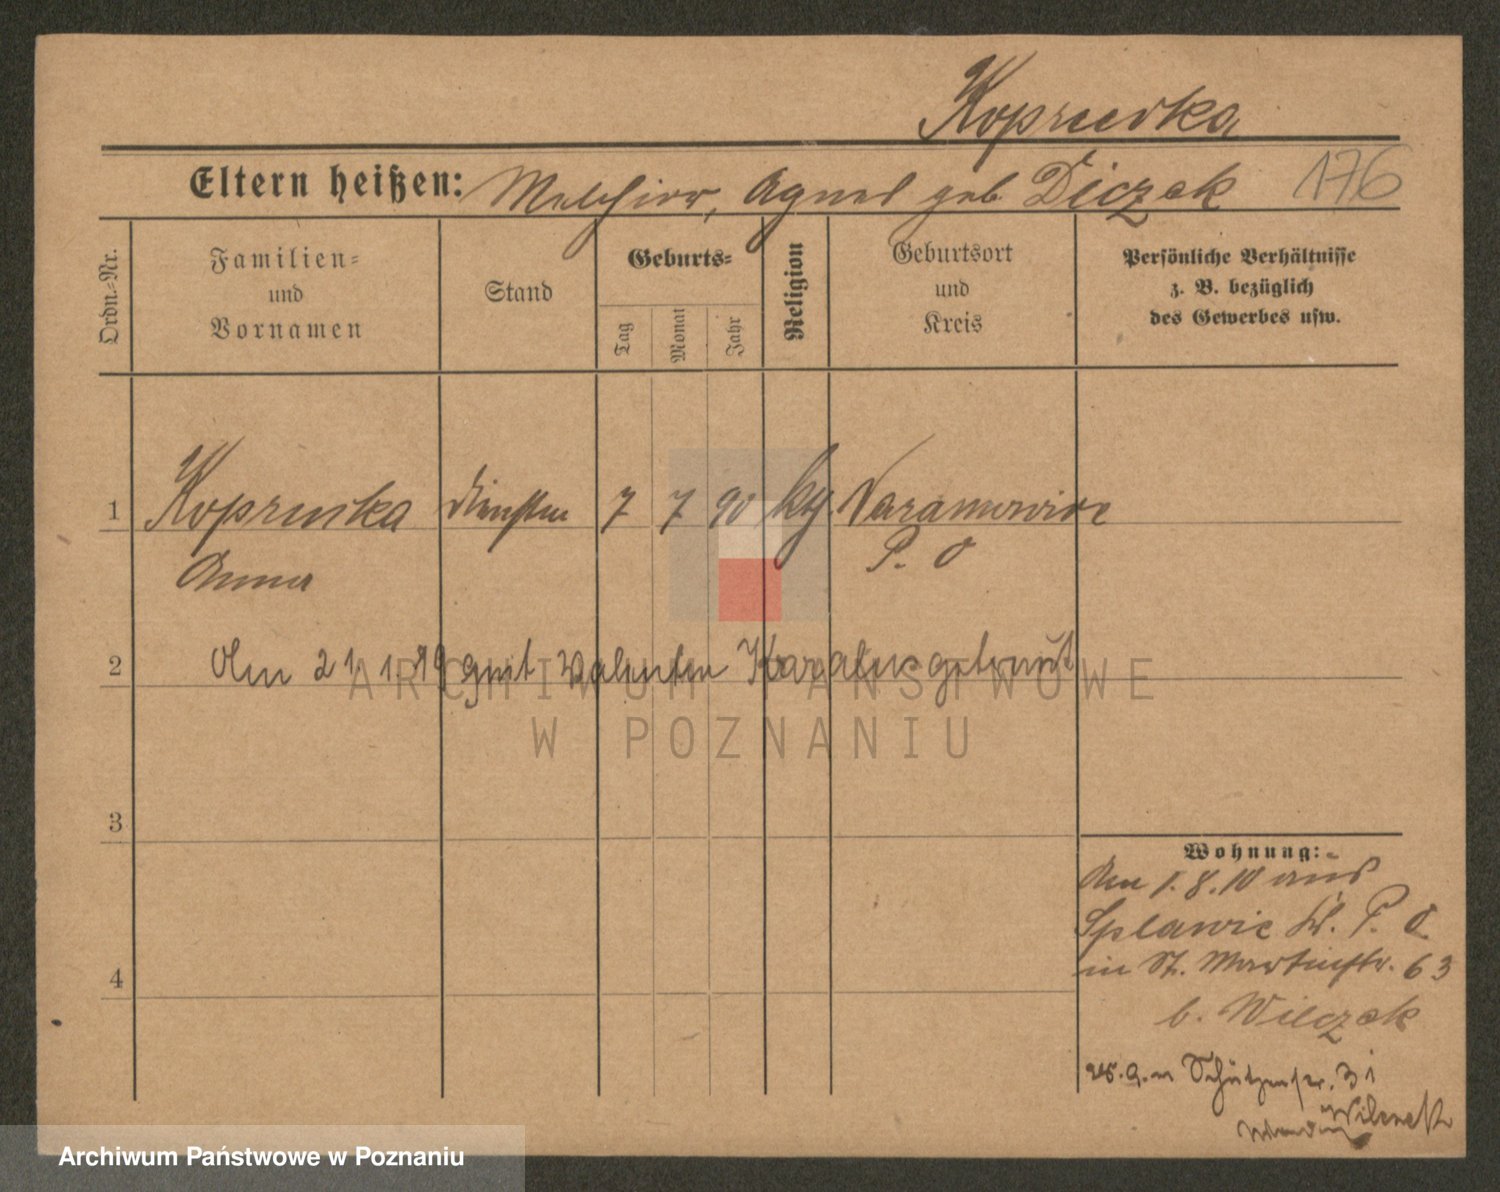 Koprucka
Eltern heißen: Melchior, Agnes geb. Diczak 176
Ordn.=Nr.
Familien=
und
Vornamen
Stand
Geburts=
Tag
Monat
Jahr
Religion
Geburtsort
und
Kreis
Persönliche Verhältnisse
z. B. bezüglich
des Gewerbes usw.
1 Koprucka 7 7 90
Anna P. O
2 Am 21 1 19 mit Valentin getraut
3
4
Wohnung:
Am 1.8.10 aus
Splawie Kr. P. O.
in St. Martinstr. 63
b. Wilczak
Schützenstr. 31
Wilczak
ARCHIWUM PAŃSTWOWE
W POZNANIU
Archiwum Państwowe w Poznaniu